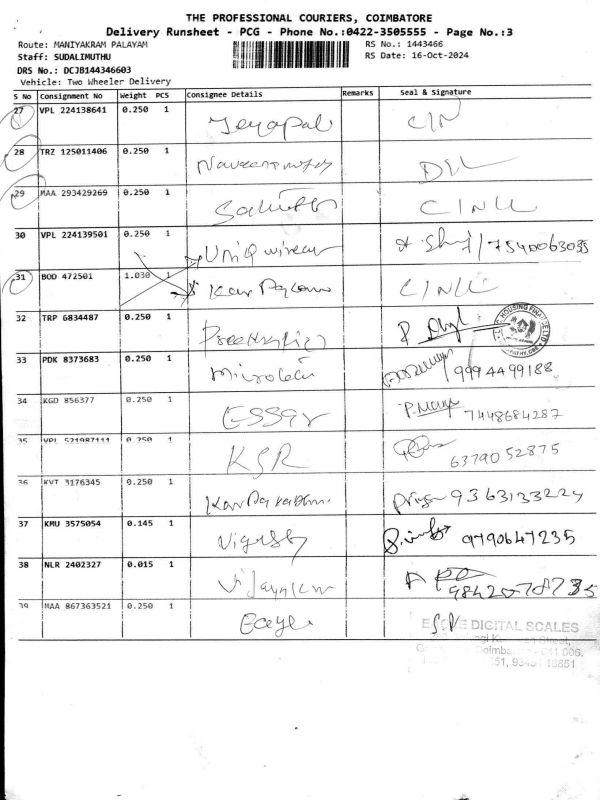 THE PROFESSIONAL COURIERS, COIMBATORE
Delivery Runsheet - PCG - Phone No.:0422-3505555 - Page No.:3
Route: MANIYAKRAM PALAYAM RS No.: 1443466
Staff: SUDALIMUTHU RS Date: 16-Oct-2024
DRS No.: DCJB144346603
Vehicle: Two Wheeler Delivery
S No Consignment No Weight PCS Consignee Details Remarks Seal & Signature
27 VPL 224138641 0.250 1 Jeyapal
28 TRZ 125011406 0.250 1
29 MAA 293429269 0.250 1
30 VPL 224139501 0.250 1 UniQ 7540063035
31 BOD 472501 1.030 1
32 TRP 6834487 0.250 1 HOUSING FINANCE LTD
33 PDK 8373683 0.250 1 9994499188
34 KGD 856377 0.250 1 ESSar 7448684287
35 VPL 521987111 0.250 1 KSR 6379052875
36 KVT 3176345 0.250 1 Priya 9363133224
37 KMU 3575054 0.145 1 9790647235
38 NLR 2402327 0.015 1 9842078735
39 MAA 867363521 0.250 1 Eagle
DIGITAL SCALES
Street,
641 006.